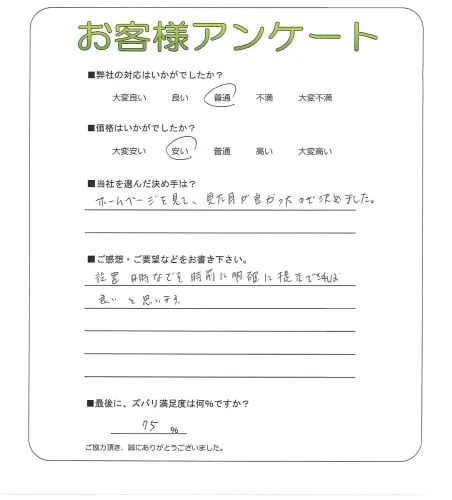 お客様アンケート
■弊社の対応はいかがでしたか？
大変良い 良い 普通 不満 大変不満
■価格はいかがでしたか？
大変安い 安い 普通 高い 大変高い
■当社を選んだ決め手は？
ホームページを見て、見た目が良かったので決めました。
■ご感想・ご要望などをお書き下さい。
設置日時などを事前に明確に提示できれば
良いと思います
■最後に、ズバリ満足度は何％ですか？
75 ％
ご協力頂き、誠にありがとうございました。